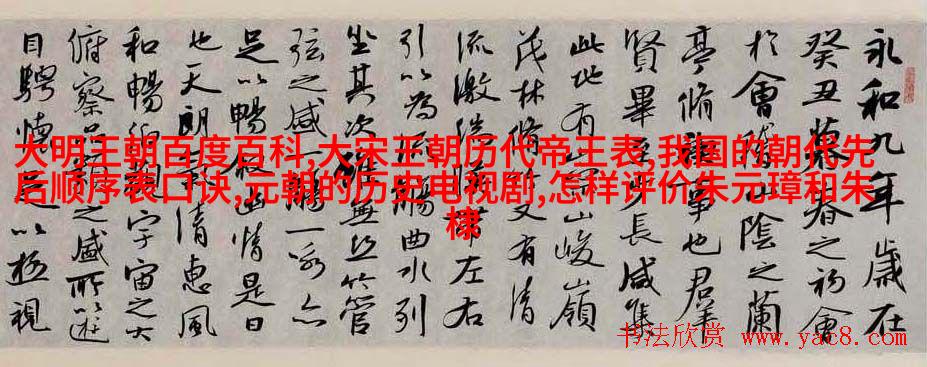 大明王朝百度百科,大宋王朝历代帝王表,我国的朝代先
后顺序表口诀,元朝的历史电视剧,怎样评价朱元璋和朱
棣
永和九年歲在
癸丑暮春之初會
於會稽山陰之蘭
亭脩禊事也羣
賢畢至少長咸集
此地有崇山峻嶺
茂林脩竹又有清
流激湍暎帶左右
引以為流觴曲水列
坐其次雖無丝竹管
弦之盛一觴一詠亦
足以暢叙幽情是日
也天朗氣清惠風
和暢仰觀宇宙之大
俯察品類之盛所以遊
目騁懷足以極視
书法欣赏 www.yac8.com